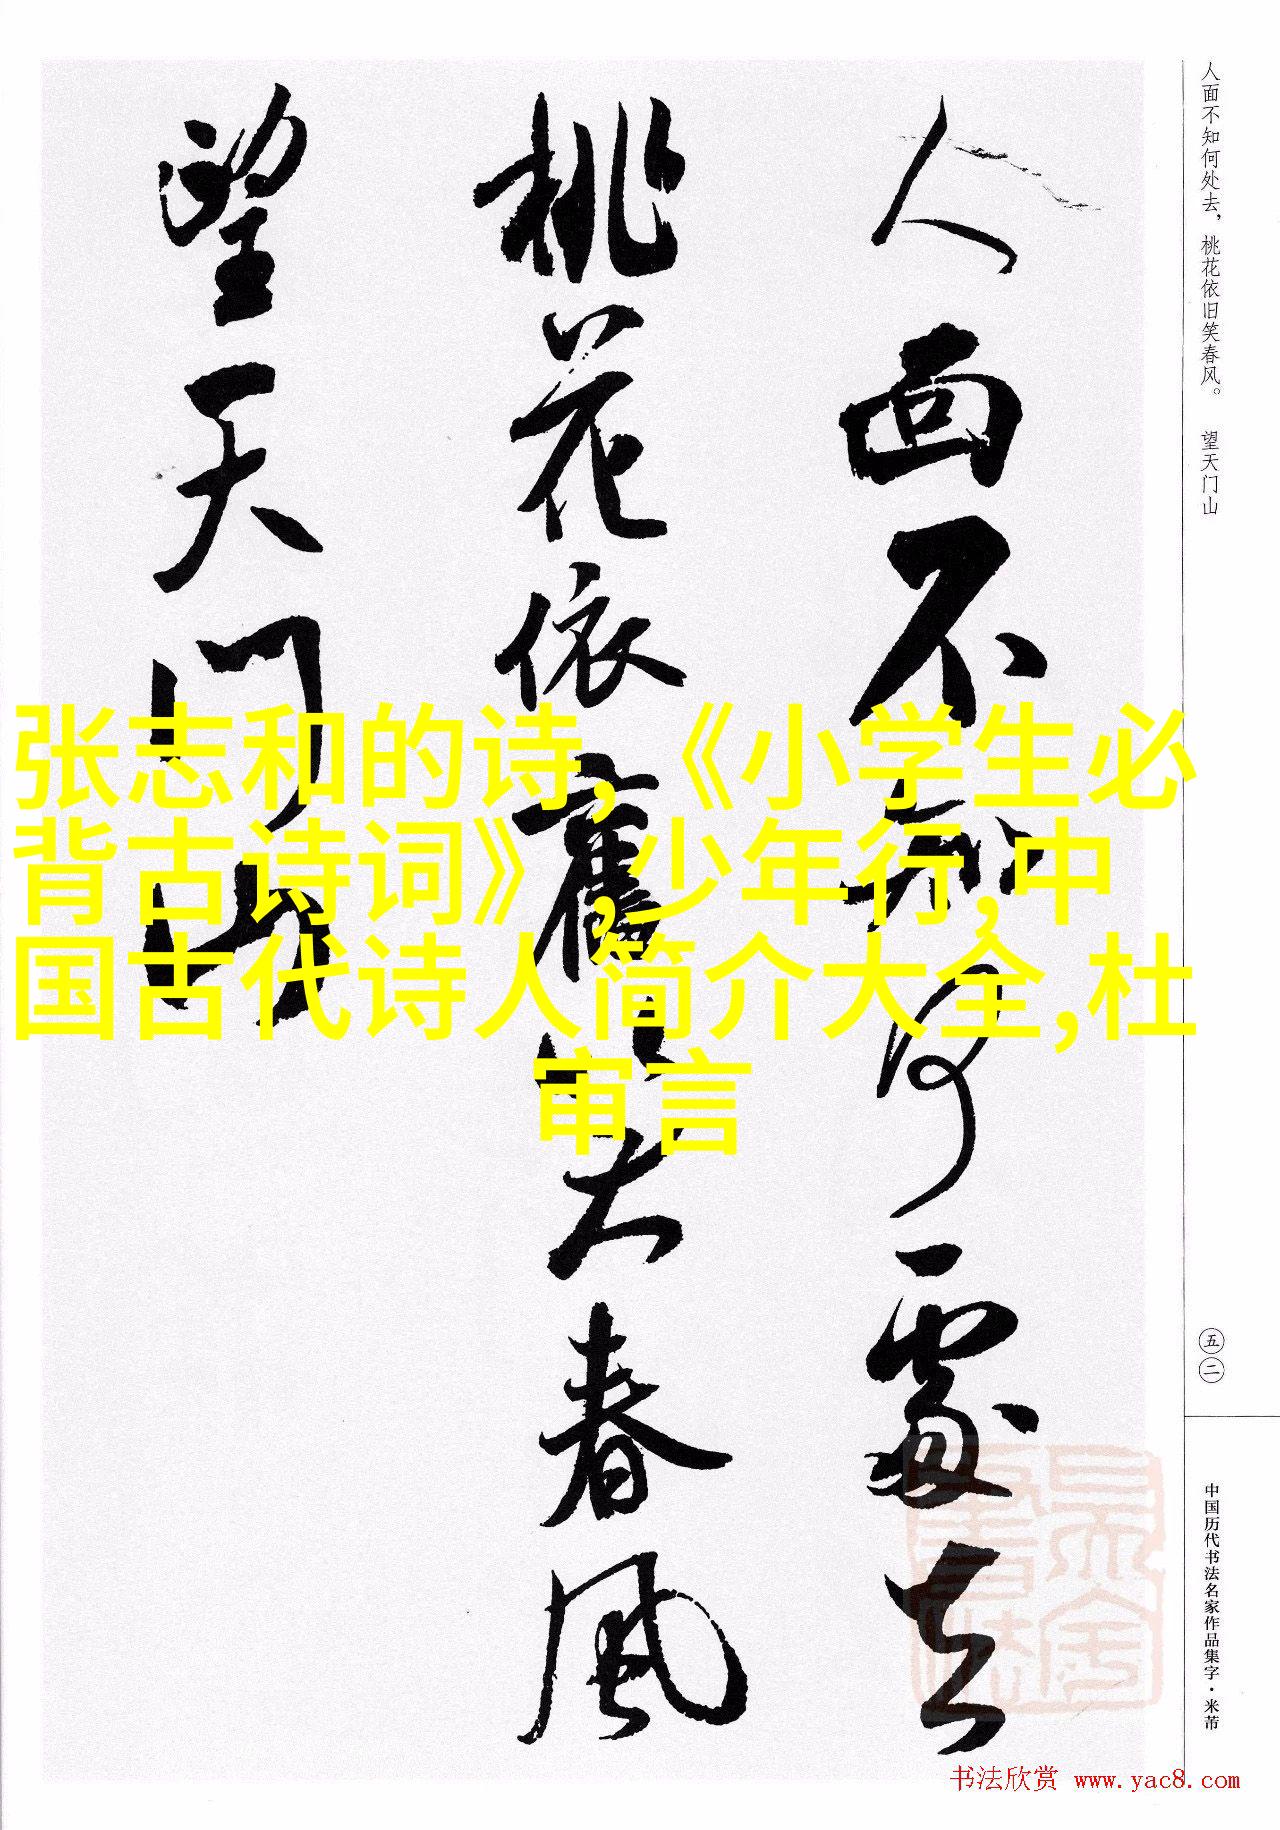 人面不知何处去，桃花依旧笑春风。 望天门山
人面不知何處去
桃花依舊笑春風
望天门山
张志和的诗,《小学生必
背古诗词》,少年行,中
国古代诗人简介大全,杜
审言
五二
中国历代书法名家作品集字·米芾
书法欣赏 www.yac8.com